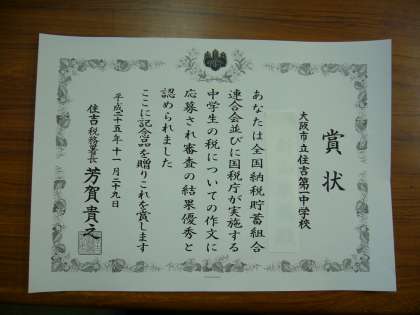 賞状
大阪市立住吉第一中学校
あなたは全国納税貯蓄組合
連合会並びに国税庁が実施する
中学生の税についての作文に
応募され審査の結果優秀と
認められました
ここに記念品を贈りこれを賞します
平成二十五年十一月二十九日
住吉税務署長 芳賀貴之